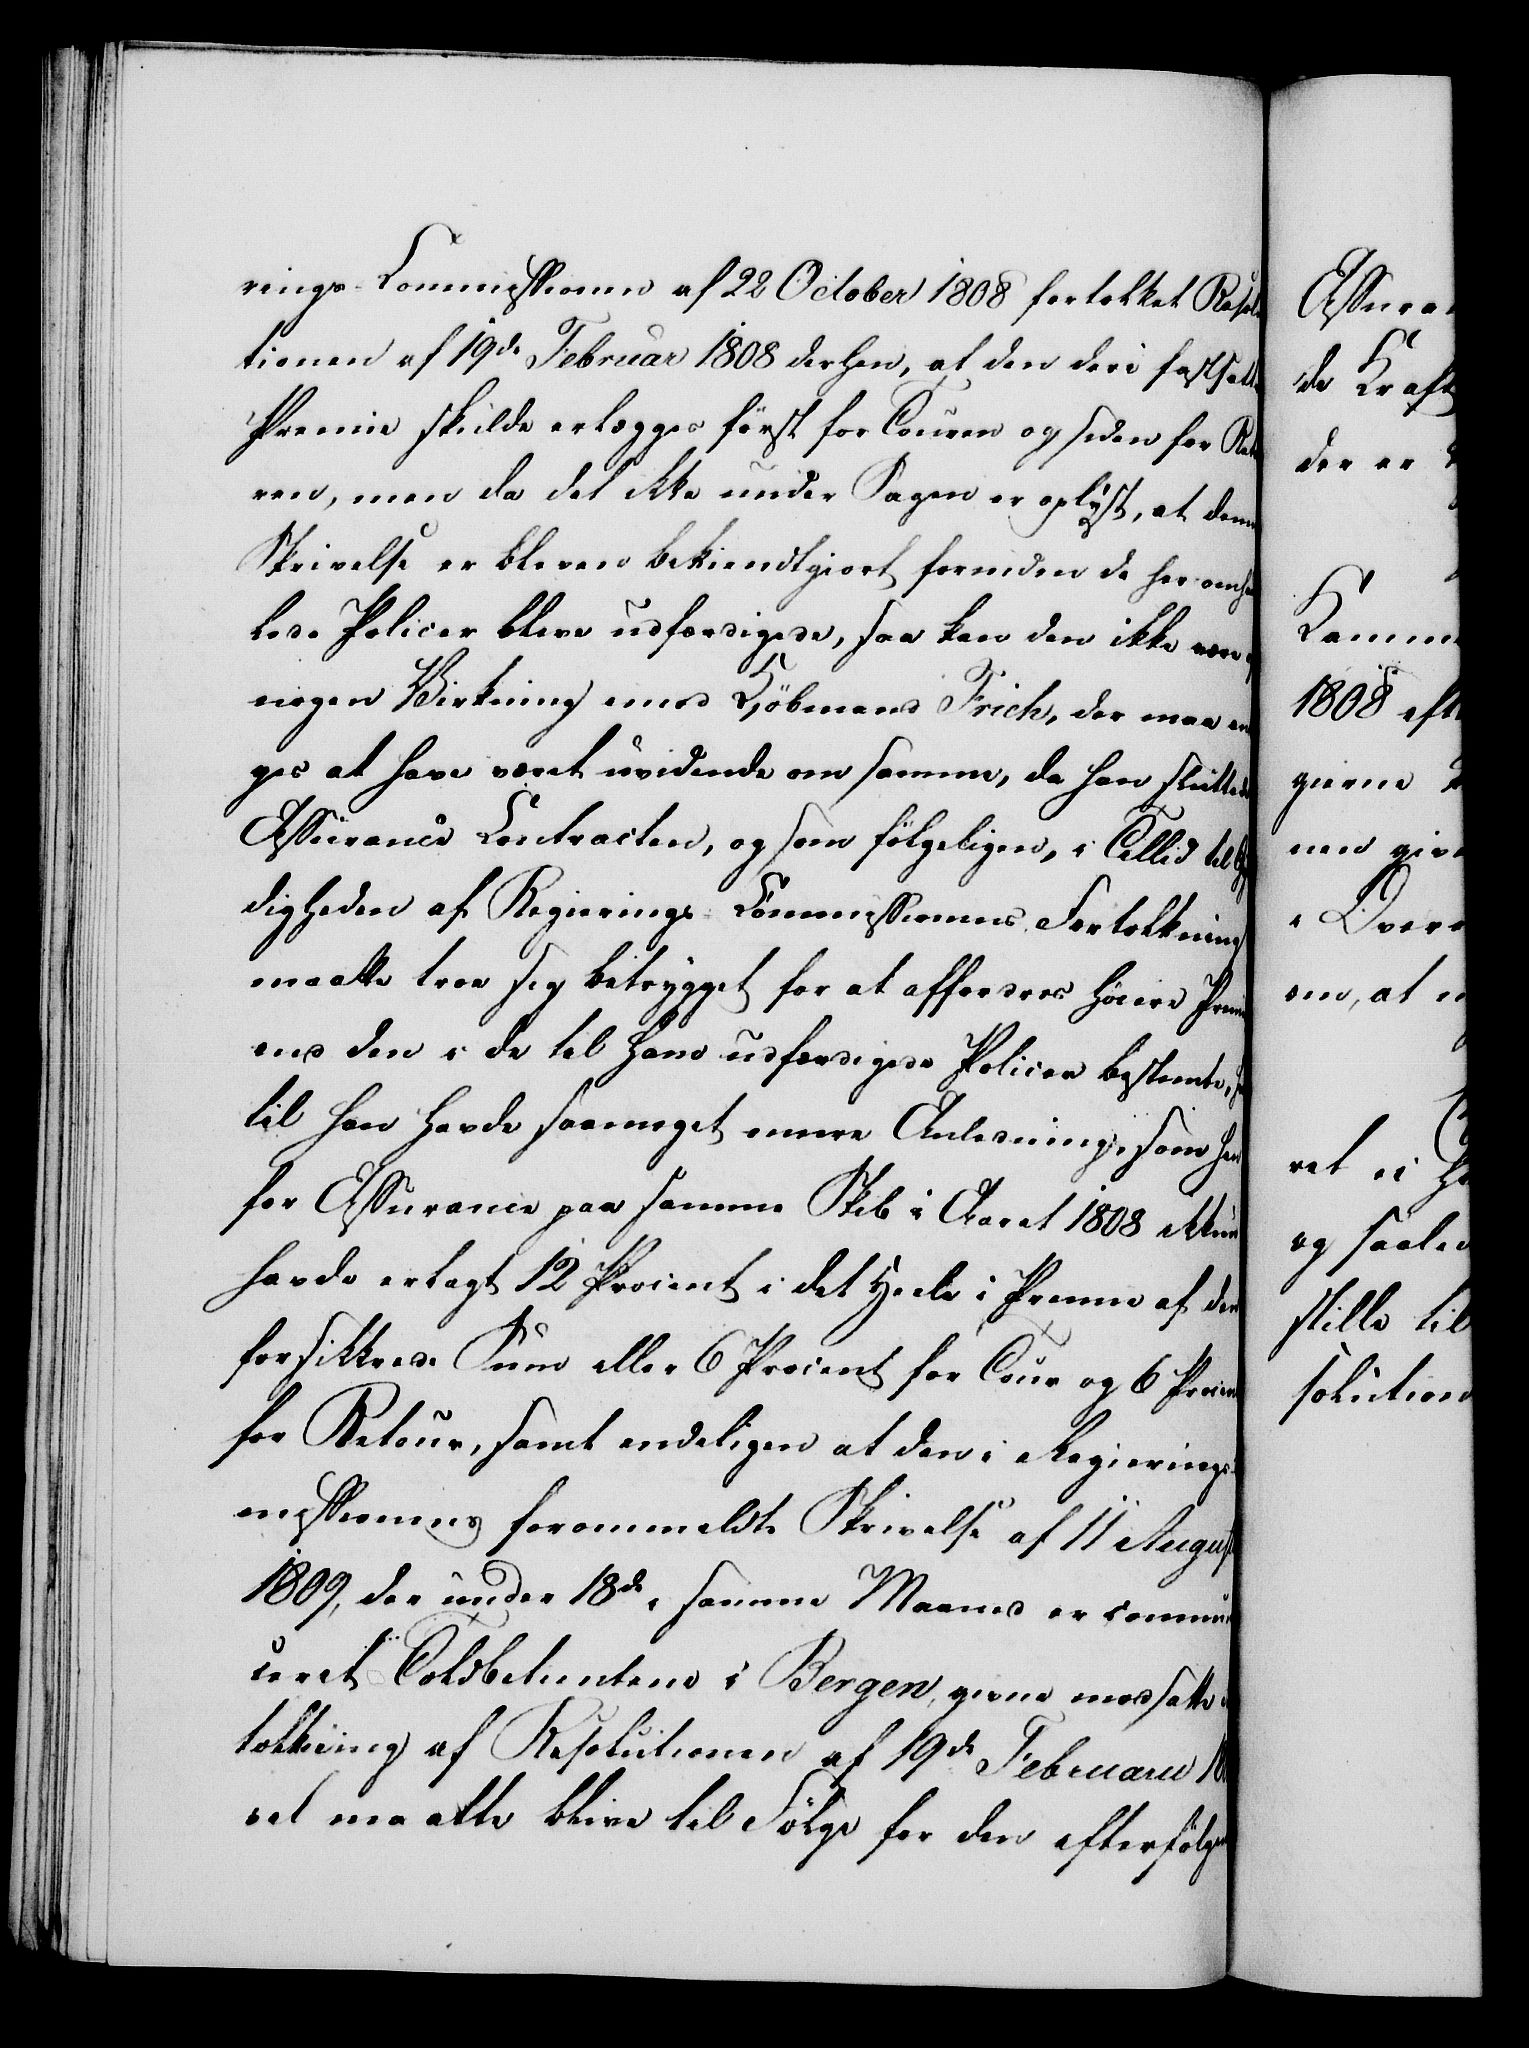 rings-Commissionen af 22 October 1808 fortolket Resolu
tionen af 19de Februar 1808 derhen, at den deri fastsatte
Præmie skulde erlægges först for Couren og siden for Retu
ren, men da det ikke under Sagen er oplyst, at denne
Skrivelse er bleven bekiendtgiort forinden de heromhan
lede Policer bleve udfærdigede, saa kan den ikke være af
nogen Virkning imod Kjöbmand Frich, der maa an
ges at have været uvidende om samme, da han sluttede
Assurance Contracten, og som fölgeligen, i Tillid til Gyl
digheden af Regierings-Commissionens Fortolkning
maatte troe sig betrygget for at affordres höiere Præmie
end den i de til ham udfærdigede Policer bestemte, her
til han havde saameget mere Anledning, som han
for Assurance paa samme Skib i Aaret 1808 ikkun
havde erlagt 12 Procent i det Heele i Præmie af den
forsikkrede Sum eller 6 Procent for Cour og 6 Procent
for Retour, samt endeligen at den i Regierings-
missionens forommeldte Skrivelse af 11 August
1809, der under 18de i samme Maaned er commun
iceret Toldbetientene i Bergen, givne modsatte
tolkning af Resolutionen af 19de Februarii 18
vel maatte blive til Fölge for den efterfölgen
Assuran
de Kraft
der er
Comm
1808 eft
givne
nen give
i Over
om, at
ret ei
og saale
stille til
solution